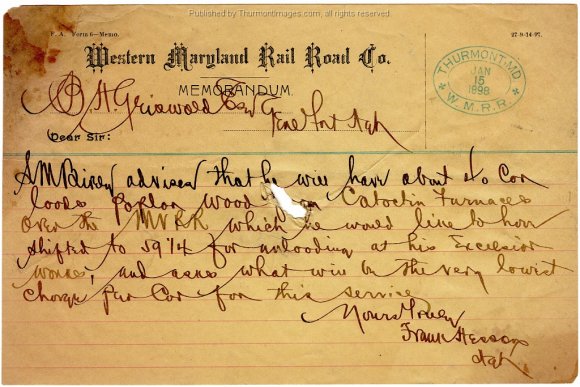 Published by Thurmontimages.com, all rights reserved
F. A. Form 6—Memo.
27-9-14-97.
Western Maryland Rail Road Co.
MEMORANDUM.
THURMONT, MD
JAN
15
1898
W. M. R. R.
B H Griswold Esq Genl Frt Agt
Dear Sir:
S M Birely advises that he will have about 40 Car
loads poplar wood Catoctin Furnaces
over the MVRR which he would like to have
shifted to for unloading at his Excelsior
works, and asks what will be the very lowest
charge per Car for this service
Yours truly
Frank Hesson
Agt